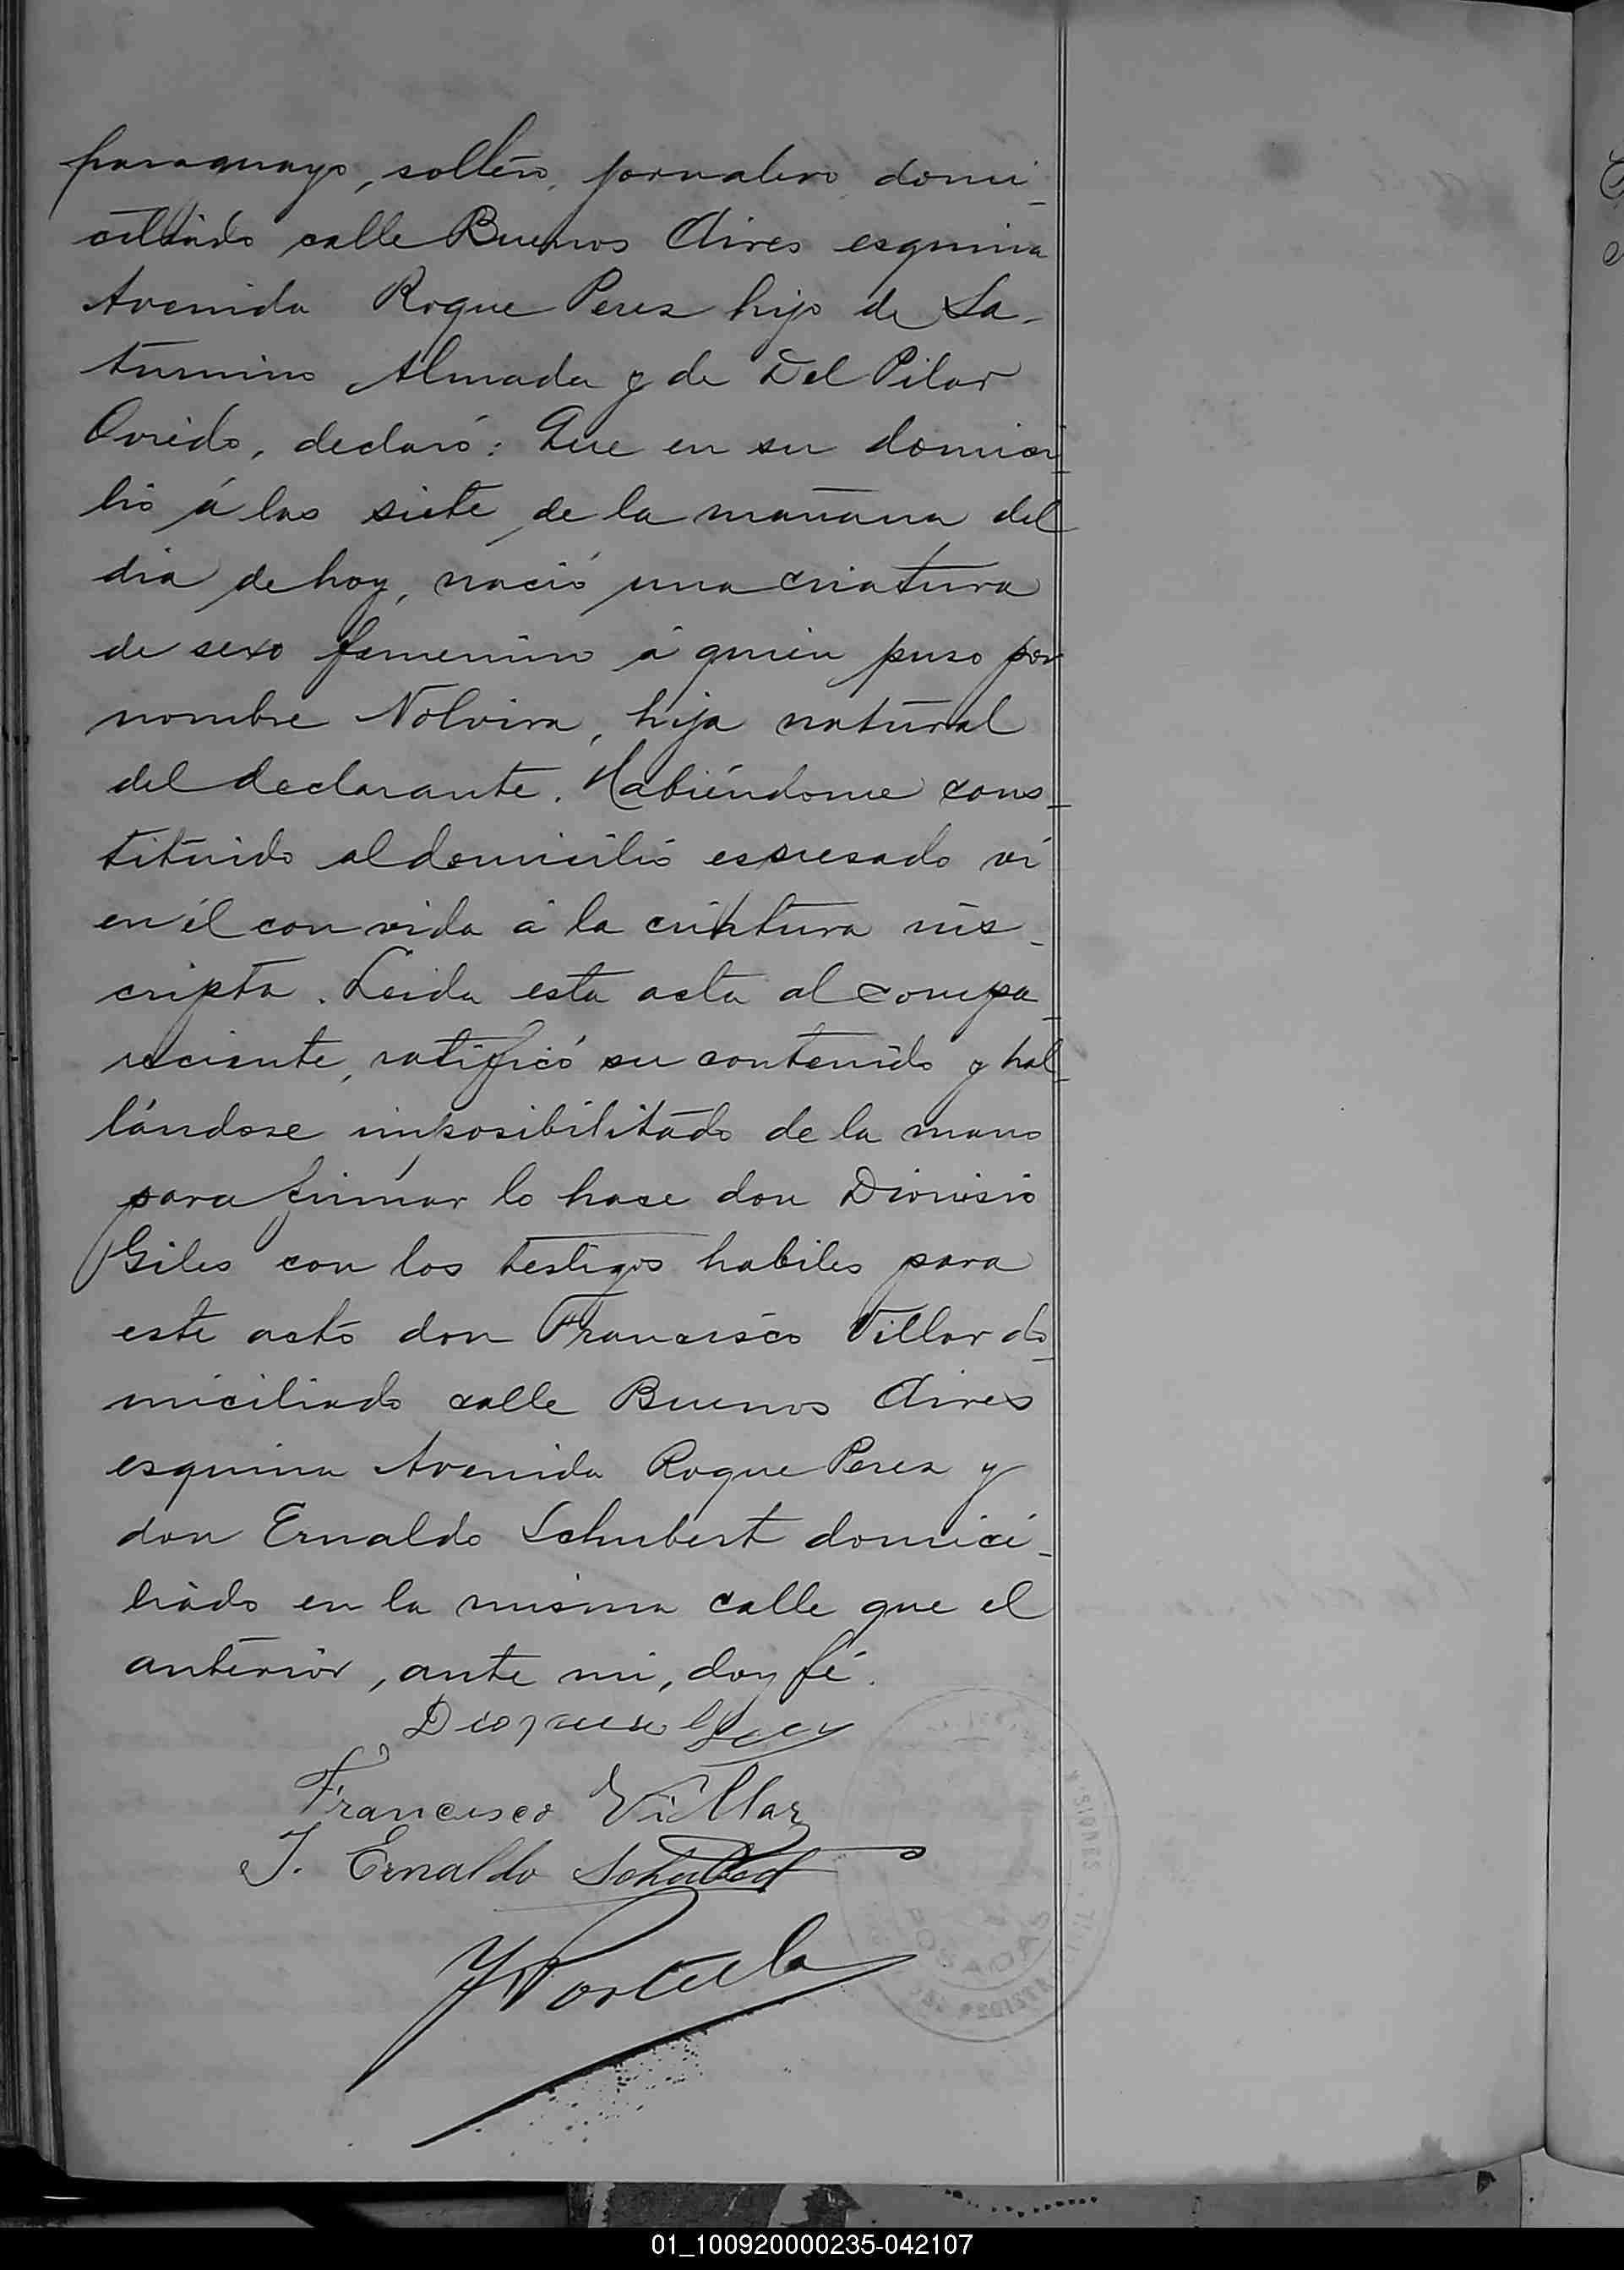 paraguayo, soltero, jornalero domi-
ciliado calle Buenos Aires esquina
Avenida Roque Perez hijo de Sa-
turnino Almada y de Del Pilar
Oviedo, declaró: Que en su domici-
lio á las siete de la mañana del
dia de hoy, nació una criatura
de sexo femenino á quien puso por
nombre Nolvira, hija natural
del declarante. Habiéndome cons-
tituido al domicilio espresado ví
en él con vida á la criatura ins-
cripta. Leida esta acta al compa-
reciente, ratificó su contenido y hal-
lándose imposibilitado de la mano
para firmar lo hace don Dionisio
Giles con los testigos habiles para
este acto don Francisco Villar do-
miciliado calle Buenos Aires
esquina Avenida Roque Perez y
don Ernaldo Schubert domici-
liado en la misma calle que el
anterior, ante mi, doy fé.
Francisco Villar
J. Ernaldo Schubert
Portela
POSADAS
01_100920000235-042107